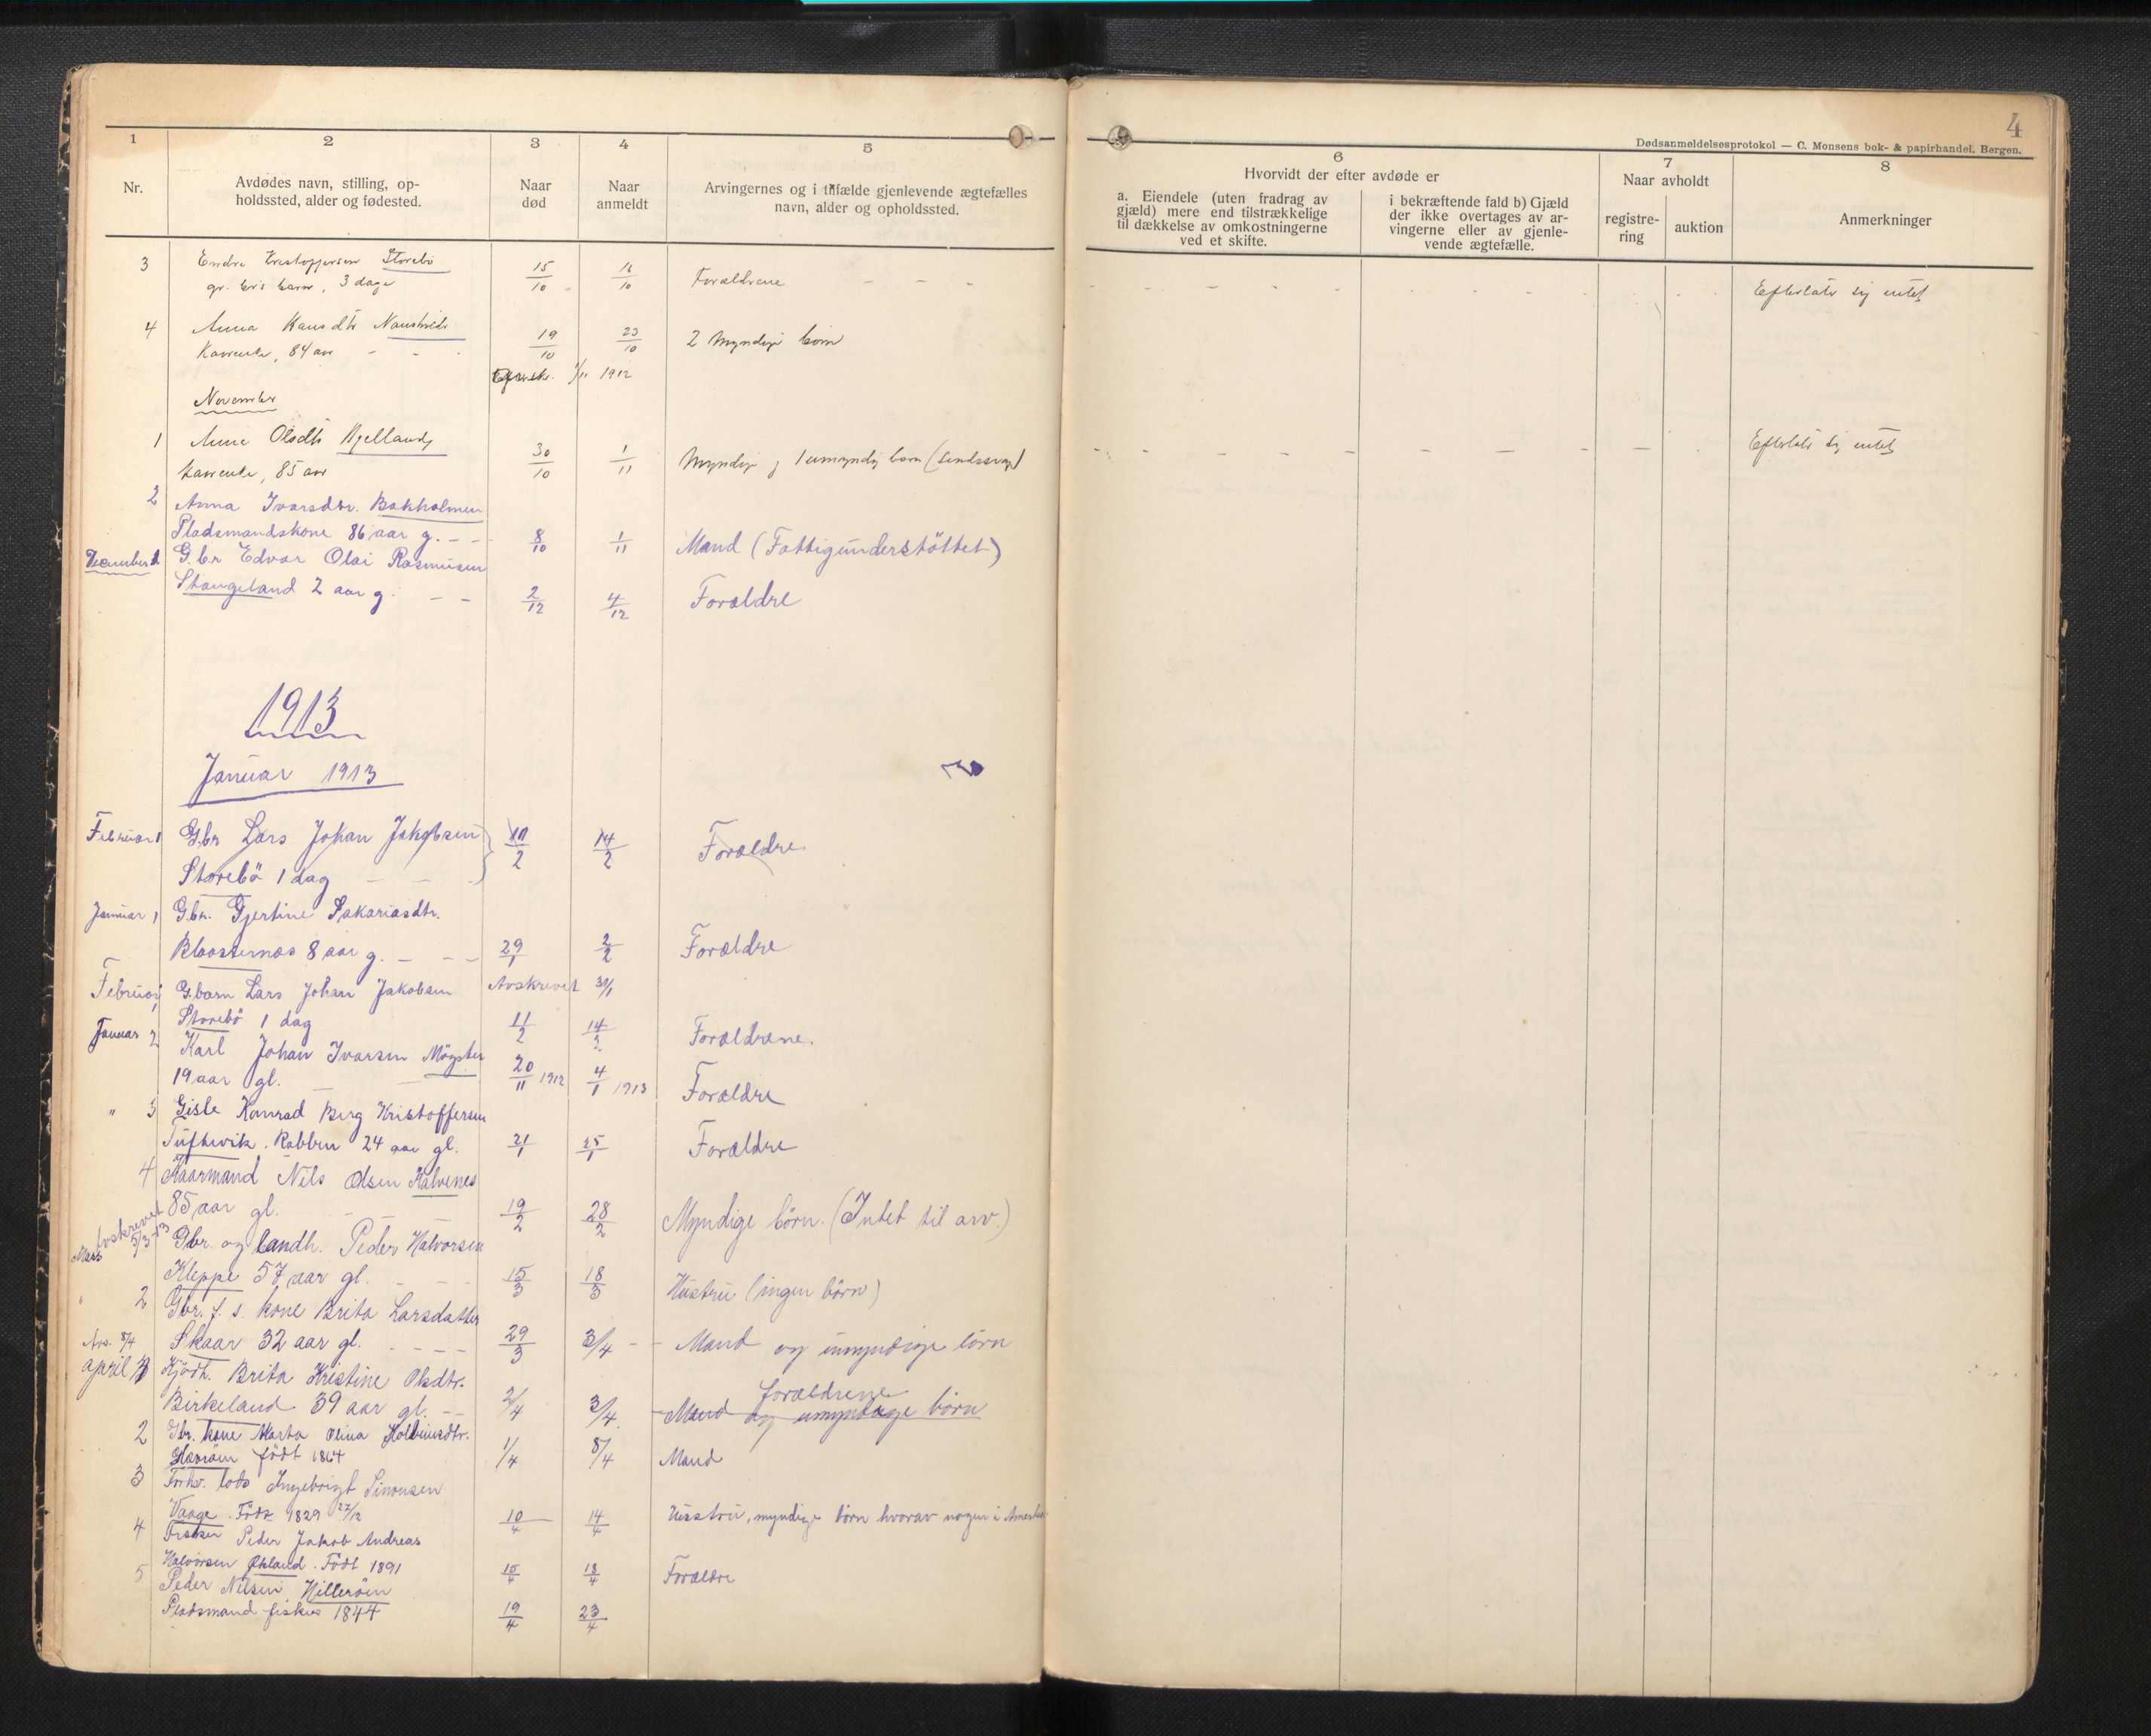 4
Dødsanmeldelsesprotokol — C. Monsens bok- & papirhandel. Bergen.
1 2 3 4 5 6 7 8
Nr.
Avdødes navn, stilling, op-
holdssted, alder og fødested.
Naar
død
Naar
anmeldt
Arvingernes og i tilfælde gjenlevende ægtefælles
navn, alder og opholdssted.
Hvorvidt der efter avdøde er
a. Eiendele (uten fradrag av
gjæld) mere end tilstrækkelige
til dækkelse av omkostningerne
ved et skifte.
i bekræftende fald b) Gjæld
der ikke overtages av ar-
vingerne eller av gjenle-
vende ægtefælle.
Naar avholdt
registre-
ring
auktion
Anmerkninger
3 Endre Kristoffersen Storebø 15/10 16/10 Forældrene
gr. br's barn, 3 dage Efterlater sig intet
4 Anna Hansdtr 19/10 23/10 2 myndige børn
Kaarenke, 84 aar
1/11 1912
November
1 Anne Olsdtr 30/10 1/11 Myndige og 1 umyndig barn
Kaarenke, 85 aar Efterlater sig intet
2 Anna Ivarsdtr. Bakholmen
Pladsmandskone 86 aar g. - - 8/10 1/11 Mand (Fattigunderstöttet)
December 1 G.br Edvar Olai Rasmusen
Stangeland 2 aar g. - - 2/12 4/12 Forældre
1913
Januar 1913
Februar 1 G.br Lars Johan Jakobsen 10/2 14/2 Forældre
Storebö 1 dag
Januar 1 G.br. Gjertine Sakariasdtr.
Klosternes 8 aar g. - - 29/1 2/2 Forældre
Februar 1 G.barn Lars Johan Jakobsen Avskrevet 31/1
Storebö 1 dag 11/2 14/2 Forældrene.
Januar 2 Karl Johan Ivarsen Mögster
19 aar gl. 20/11 1912 4/1 1913 Forældre
" 3 Gisle Konrad Berg Kristoffersen
Tuftevik. Rabben 24 aar gl. 21/1 25/1 Forældre
4 Kaarmand Nils Olsen Kalvenes
85 aar gl. 19/2 28/2 Myndige börn. (Intet til arv.)
Avskrevet 5/3 13
Mars Gbr. og landh. Peder Halvorsen
Kleppe 57 aar gl. 15/3 18/3 Hustru (ingen börn)
" 2 Gbr. f. s. kone Brita Larsdatter
Skaar 32 aar gl. 29/3 3/4 - - Mand og umyndige börn
Avs. 8/4
april 1 Kjödh. Brita Kristine Olsdtr. forældrene
Birkeland 39 aar gl. - - 2/4 3/4 Mand og umyndige börn
2 Gbr. kone Marta Olina
födt 1864 1/4 8/4 Mand
3 Forhv. lods Ingebrigt Simonsen
Vaage. Födt 1829 27/12 10/4 14/4 Hustru, myndige börn hvorav nogen i Amerika
4 Fisker Peder Jakob Andreas
Halvorsen Økland. Födt 1891 15/4 18/4 Forældre
5 Peder Nilsen Hilleröen
Pladsmand fisker 1844 19/4 23/4